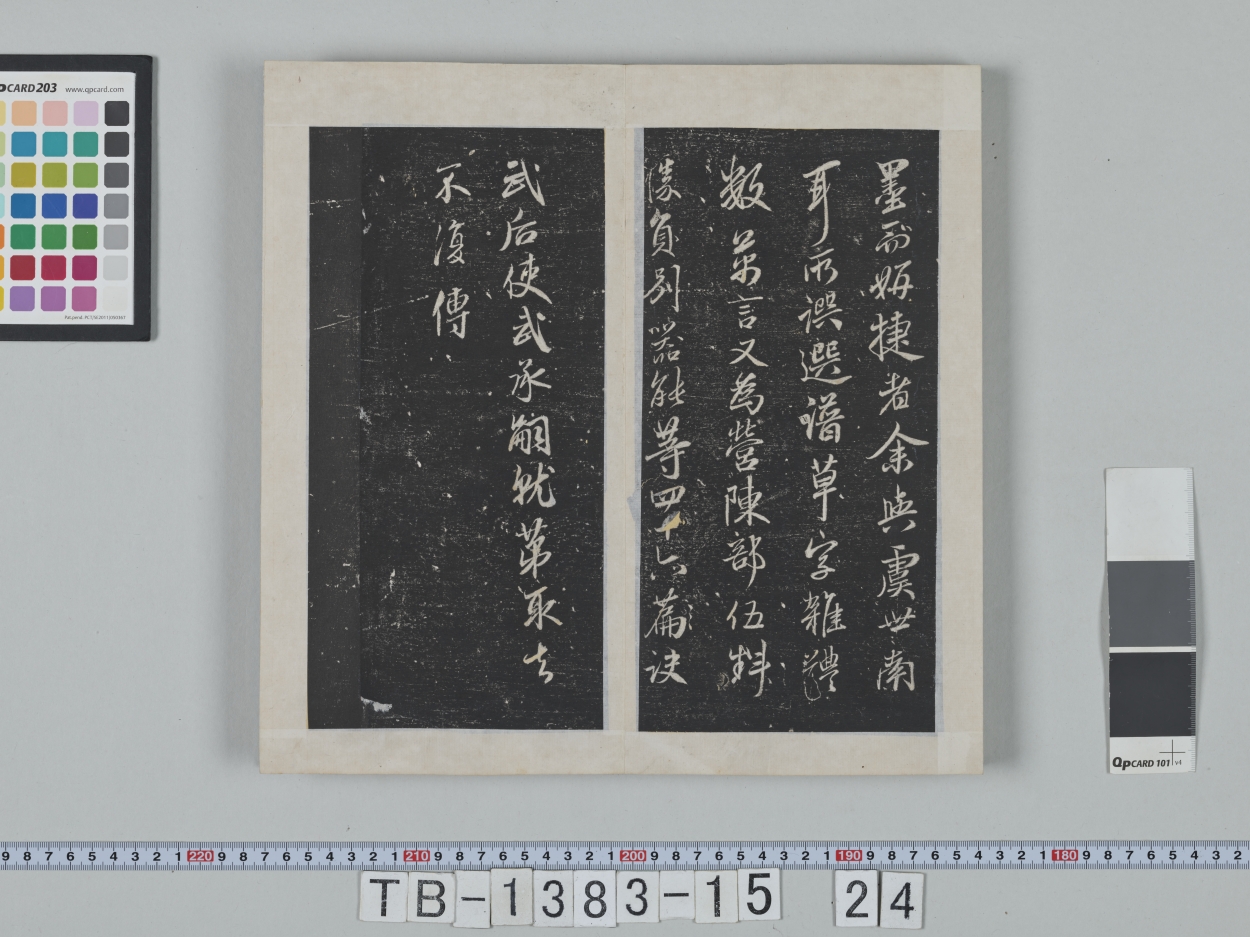 墨而妍捷者余與虞世南
耳所譔選譜草字雜體
數萬言又為營陳部伍料
勝負別器能等四十六篇訣
武后使武承嗣就第取去
不復傳
QPCARD 203 www.qpcard.com
QPCARD 101 v4
9 8 7 6 5 4 3 2 1 220 9 8 7 6 5 4 3 2 1 210 9 8 7 6 5 4 3 2 1 200 9 8 7 6 5 4 3 2 1 190 9 8 7 6 5 4 3 2 1 180 9 8 7 6 5 4 3 2
TB-1383-15 24